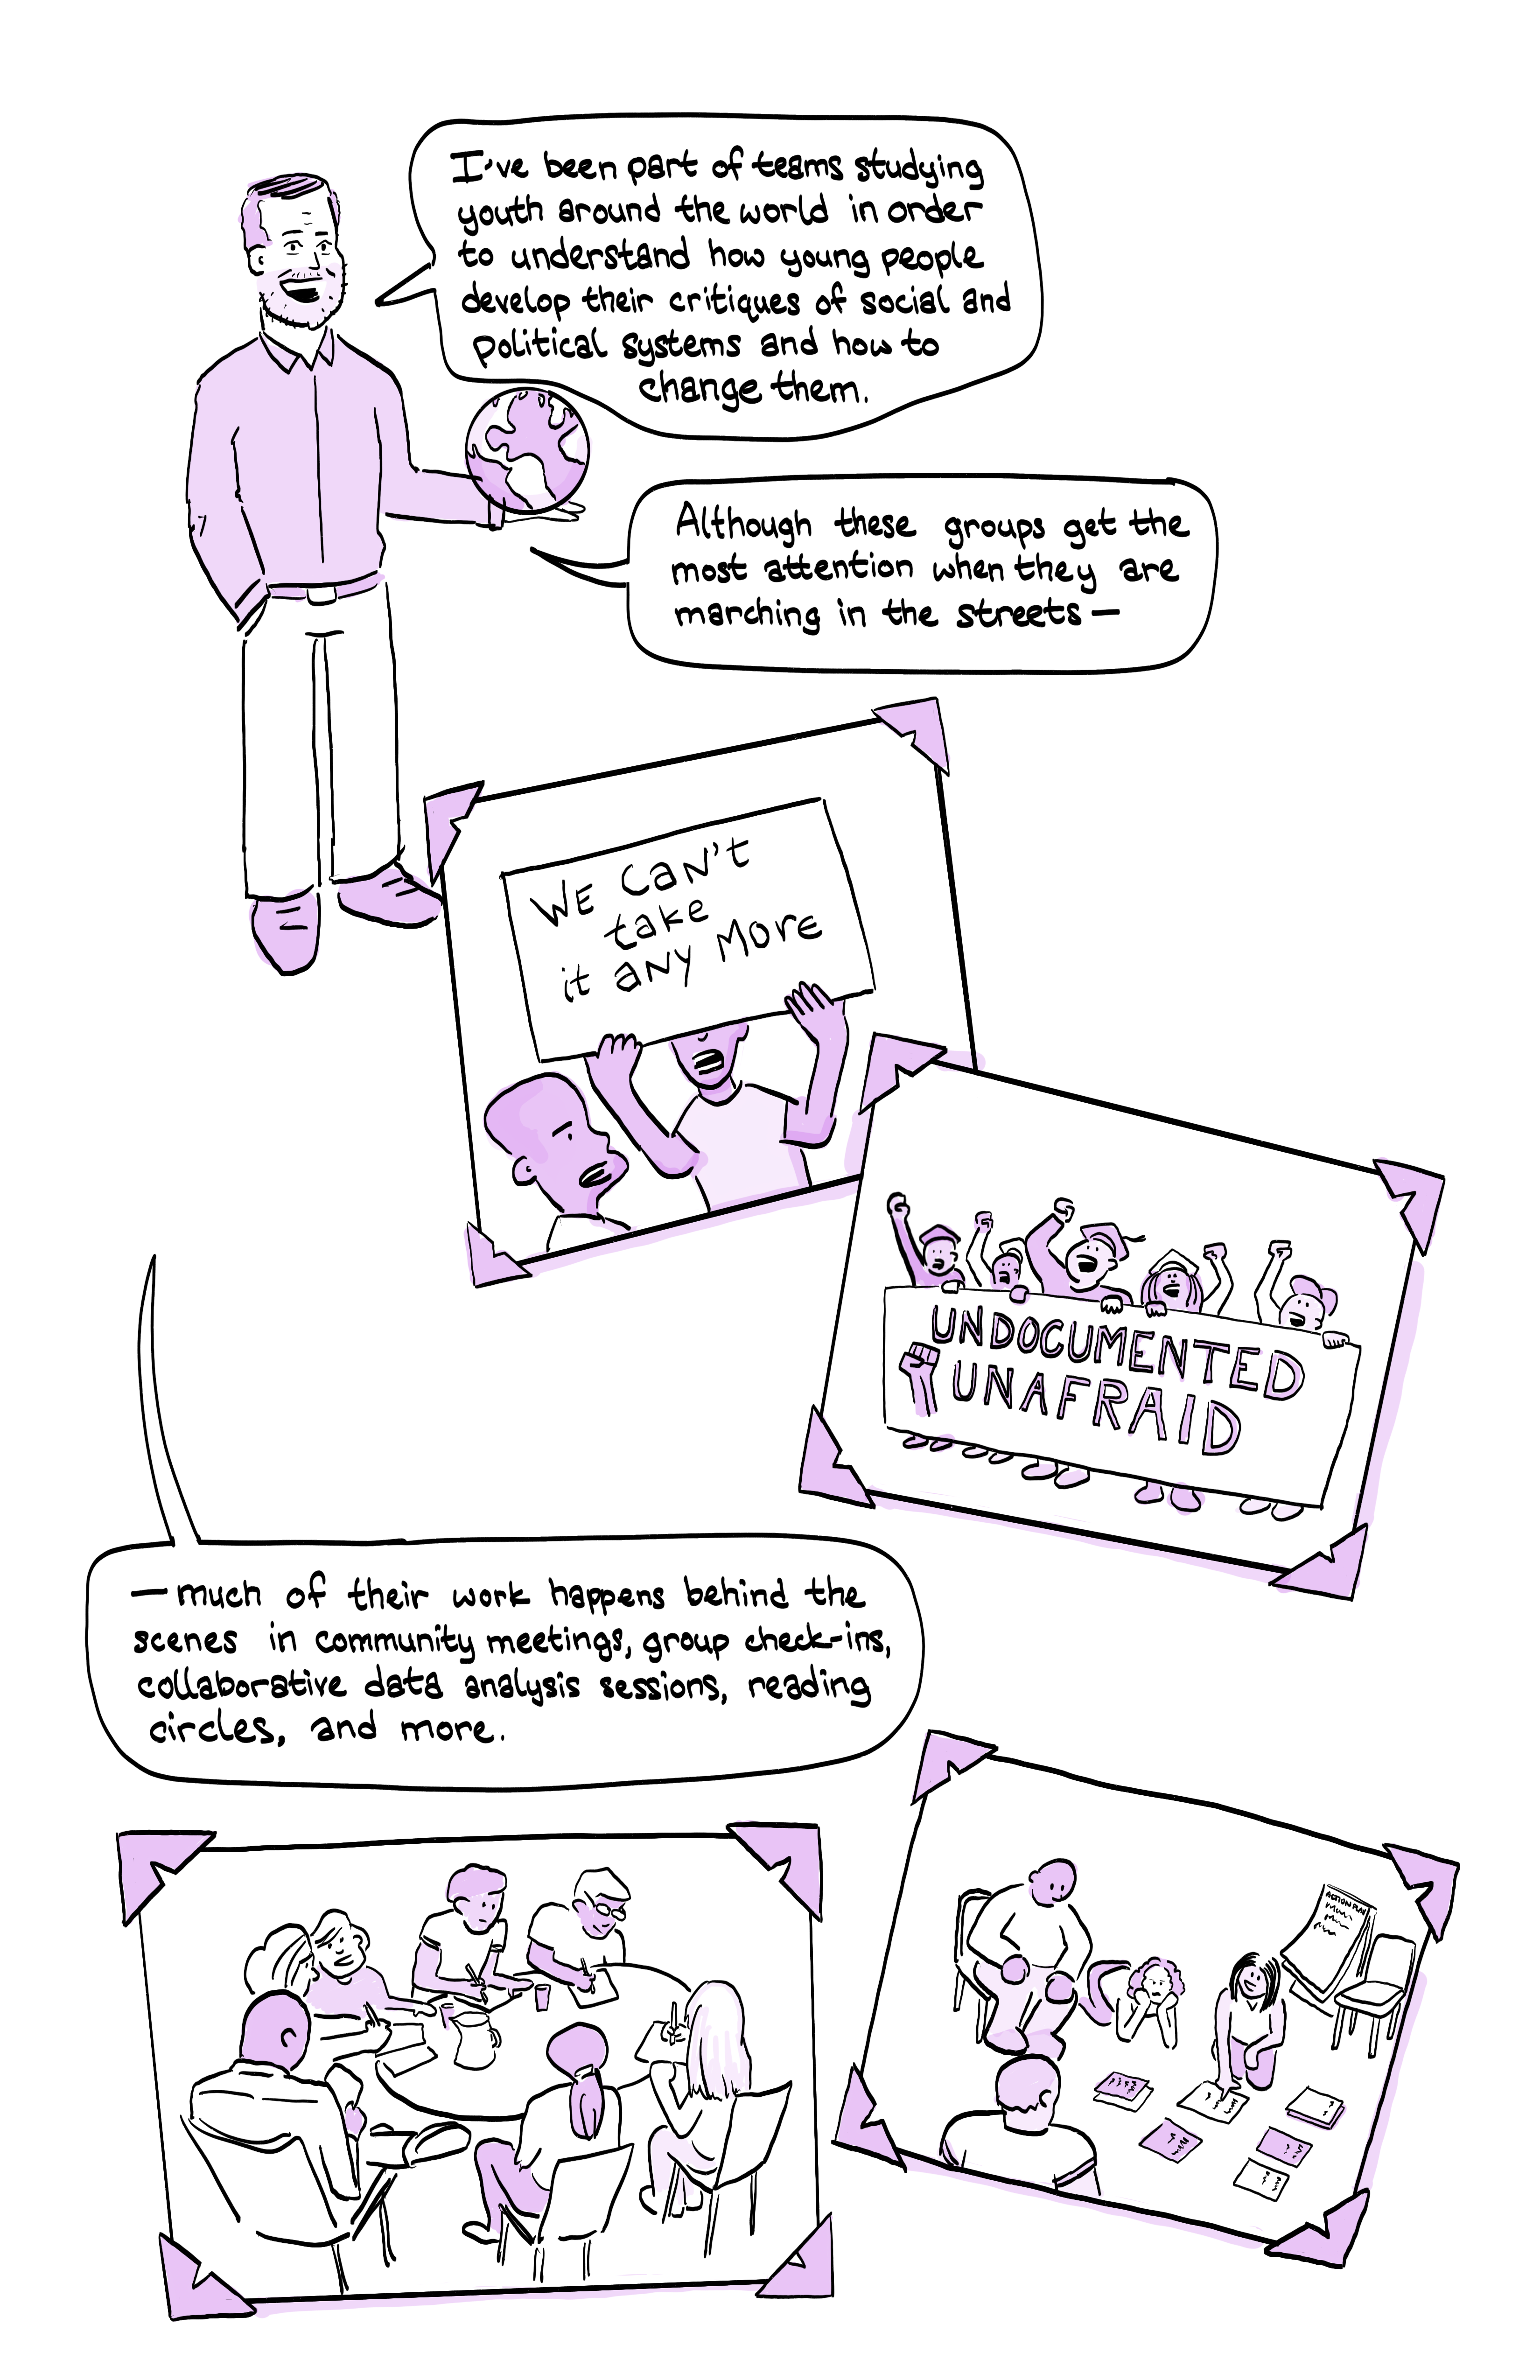 I've been part of teams studying
youth around the world in order
to understand how young people
develop their critiques of social and
political systems and how to
change them.
Although these groups get the
most attention when they are
marching in the streets—
WE CAN't
take
it ANY MORE
UNDOCUMENTED
UNAFRAID
—much of their work happens behind the
scenes in community meetings, group check-ins,
collaborative data analysis sessions, reading
circles, and more.
ACTION PLAN